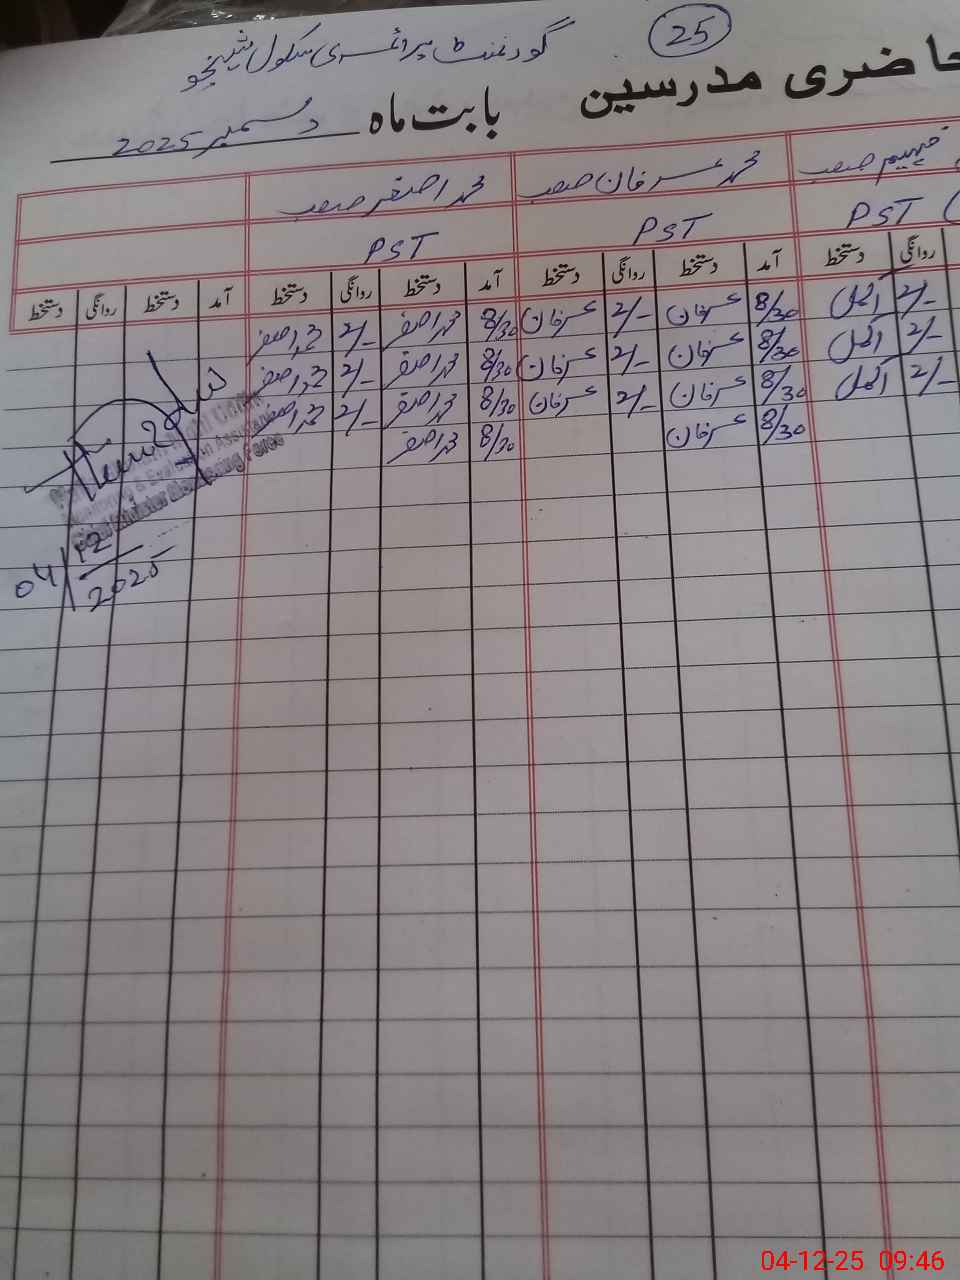 25
گورنمنٹ پرائمری سکول شیخو
حاضری مدرسین بابت ماہ دسمبر 2025
فہیم صاحب محمد عرفان صاحب محمد اصغر صاحب
PST PST PST
روانگی دستخط آمد دستخط روانگی دستخط آمد دستخط روانگی دستخط آمد دستخط روانگی دستخط
2/- اکمل 8/30 عرفان 2/- عرفان 8/30 محمد اصغر 2/- محمد اصغر
2/- اکمل 8/30 عرفان 2/- عرفان 8/30 محمد اصغر 2/- محمد اصغر
2/- اکمل 8/30 عرفان 2/- عرفان 8/30 محمد اصغر 2/- محمد اصغر
8/30 عرفان 8/30 محمد اصغر
Monitoring & Evaluation Assistant
04/12/2025
04-12-25 09:46